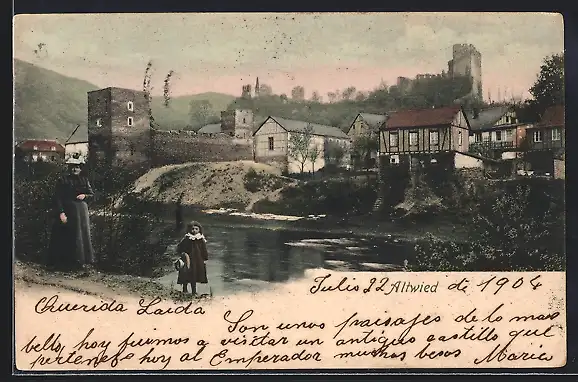 Julio 22 Altwied de 1904
Querida Laida
Son unos paisajes de lo mas
bello, hoy fuimos a visitar un antiguo castillo que
pertenece hoy al Emperador muchos besos Maria